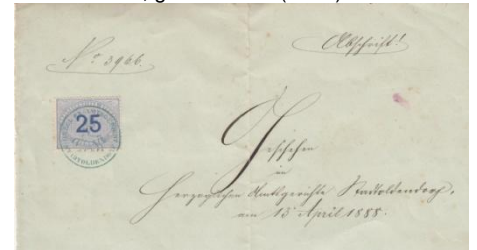 Abschrift!
No 3966.
25
Geschehen
im
Herzoglichen Amtsgerichte Stadtoldendorf,
am 13 April 1888.